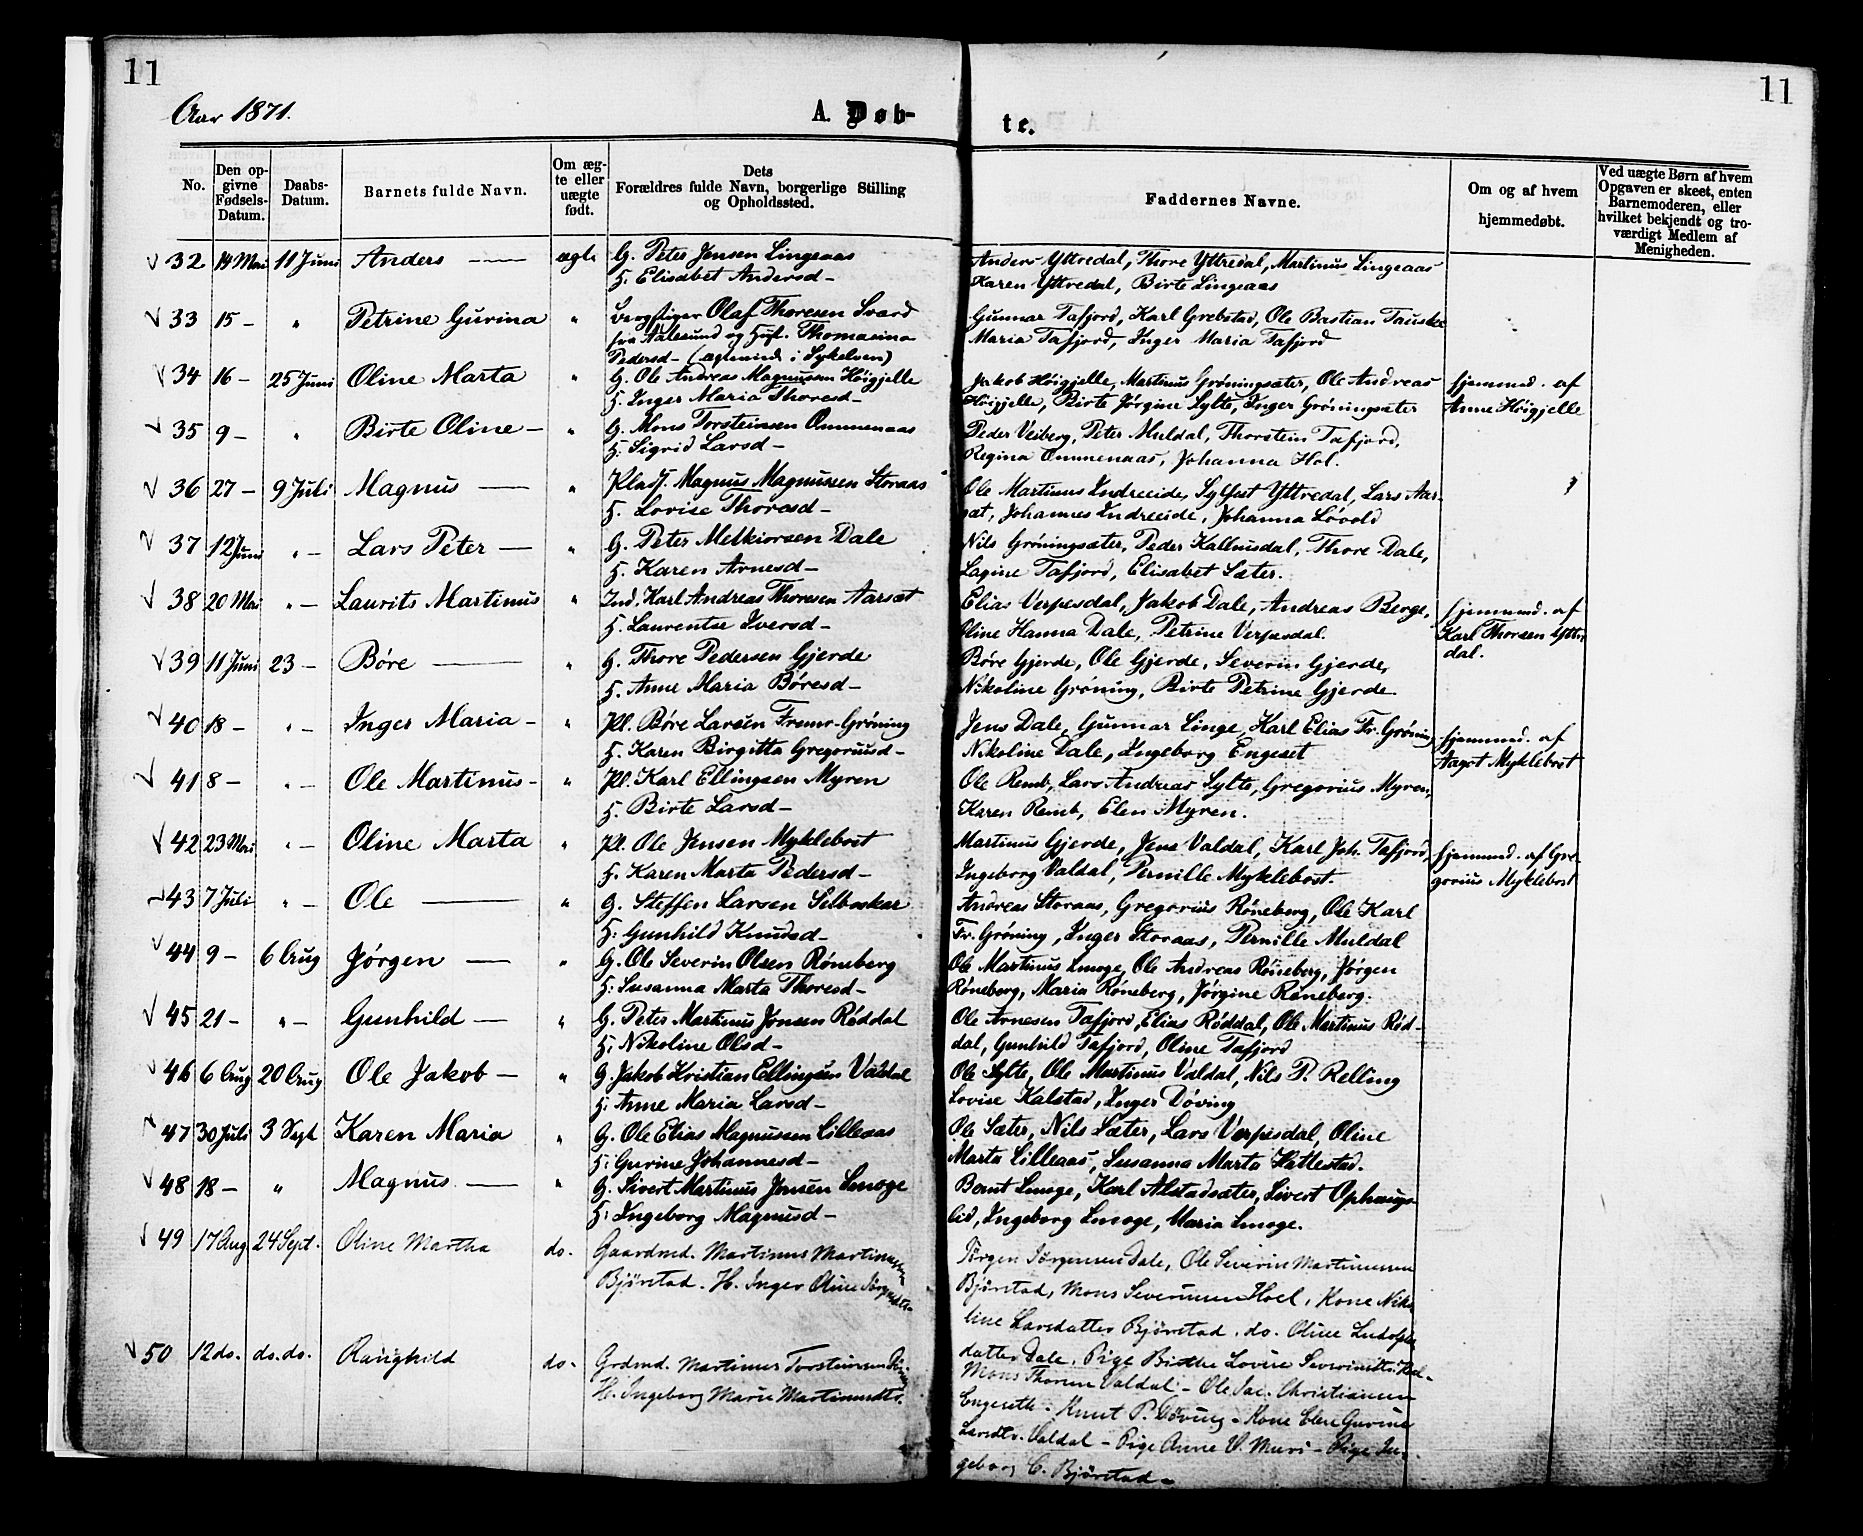 11
11
Aar 1871.
A. Døb-
te.
No.
Den op-
givne
Fødsels-
Datum.
Daabs-
Datum.
Barnets fulde Navn.
Om æg-
te eller
uægte
født.
Dets
Forældres fulde Navn, borgerlige Stilling
og Opholdssted.
Faddernes Navne.
Om og af hvem
hjemmedøbt.
Ved uægte Børn af hvem
Opgaven er skeet, enten
Barnemoderen, eller
hvilket bekjendt og tro-
værdigt Medlem af
Menigheden.
32 14 Mai 11 Juni Anders — ægte G. Peter Jensen Lingeaas
H. Elisabet Andersd —
Anders Yttredal, Thore Yttredal, Martinus Lingeaas
Karen Yttredal, Birte Lingeaas
33 15 — " Petrine Gurina " Olaf Thoresen Svard
fra Aalesund og Thomasine
Pedersd — (i Sykelven)
Gunnar Tafjord, Karl Grebstad, Ole Bastian
Maria Tafjord, Inger Maria Tafjord
34 16 — 25 Juni Oline Marta " G. Ole Andreas Magnussen Høigjelle
H. Inger Maria Thoresd —
Jakob Høigjelle, Martinus Grøningsæter, Ole Andreas
Høigjelle, Birte Jørgine Sylte, Inger Grøningsæter
hjemmed. af
Anne Høigjelle
35 9 — " Birte Oline — " G. Mons Torsteinsen Ommenaas
H. Sigrid Larsd —
Peder Veiberg, Peter Muldal, Thorstein Tafjord,
Regina Ommenaas, Johanna Hol.
36 27 — 9 Juli Magnus — " Pladsf. Magnus Magnussen Storaas
H. Lovise Thoresd —
Ole Martinus Indreeide, Sylfest Yttredal, Lars Aar-
sæt, Johannes Indreeide, Johanna Løvold
37 12 Juni " — Lars Peter — " G. Peter Melkiorsen Dale
H. Karen Arnesd —
Nils Grøningsæter, Peder Kallhusdal, Thore Dale,
Lagine Tafjord, Elisabet Sæter.
38 20 Mai " — Laurits Martinus " Ind. Karl Andreas Thoresen Aarsæt
H. Laurentse Iversd —
Elias Verpesdal, Jakob Dale, Andreas Berge,
Oline Hanna Dale, Petrine Verpesdal.
hjemmed. af
Karl Thoresen Yttre
dal.
39 11 Juni 23 — Børe — " G. Thore Pedersen Gjerde
H. Anne Maria Børesd —
Børe Gjerde, Ole Gjerde, Severin Gjerde,
Nikoline Grøning, Birte Petrine Gjerde
40 18 — " — Inger Maria — " Pl. Børe Larsen Fremr-Grøning
H. Karen Birgitta Gregoriusd —
Jens Dale, Gunnar Linge, Karl Elias Fr. Grøning
Nikoline Dale, Ingeborg Engeset
hjemmed. af
Aagot Myklebost
41 8 — " — Ole Martinus — " Pl. Karl Ellingsen Myren
H. Birte Larsd —
Ole Remb, Lars Andreas Sylte, Gregorius Myren,
Karen Remb, Elen Myren.
42 23 Mai " — Oline Marta " Pl. Ole Jensen Myklebost
H. Karen Marta Pedersd —
Martinus Gjerde, Jens Valdal, Karl Joh. Tafjord,
Ingeborg Valdal, Pernille Myklebost.
hjemmed. af Gre-
gorius Myklebost
43 7 Juli " — Ole — " G. Steffen Larsen Selboskar
H: Gunhild Knudsd —
Andreas Storaas, Gregorius Røneberg, Ole Karl
Fr. Grøning, Inger Storaas, Pernille Muldal
44 9 — 6 Aug Jørgen — " G. Ole Severin Olsen Røneberg
H: Susanna Marta Thoresd —
Ole Martinus Smoge, Ole Andreas Røneberg, Jørgen
Røneberg, Maria Røneberg, Jørgine Røneberg.
45 21 — " — Gunhild — " G. Peter Martinus Jonsen Røddal
H: Nikoline Olsd —
Ole Arnesen Tafjord, Elias Røddal, Ole Martinus Rød-
dal, Gunhild Tafjord, Oline Tafjord
46 6 Aug 20 Aug Ole Jakob — " G. Jakob Kristian Ellingsen Valdal
H: Anne Maria Larsd —
Ole Sylte, Ole Martinus Valdal, Nils P. Relling
Lovise Kalstad, Inger Døving
47 30 Juli 3 Sept Karen Maria " G. Ole Elias Magnussen Lilleaas
H: Gurine Johannesd —
Ole Sæter, Nils Sæter, Lars Verpesdal, Oline
Marta Lilleaas, Susanna Marta Hattestad.
48 18 — " Magnus — " G. Sivert Martinus Jensen Smoge
H: Ingeborg Magnusd —
Bernt Smoge, Karl Alstadsæter, Sivert Ophaugs-
lid, Ingeborg Smoge, Maria Smoge.
49 17 Aug 24 Sept. Oline Martha do. Gaardmd. Martinus Martinussen
Bjørstad. H. Inger Oline Jørgensdtr
Jørgen Jørgensen Dale, Ole Severin Martinussen
Bjørstad, Mons Severinsen Hoel, Kone Niko
line Larsdatter Bjørstad. do. Oline Ludolfs
datter Dale. Pige Birthe Lovise Severinsdtr.
50 12 do. do. do. Ranghild do. Grdmd. Martinus Torsteinsen
H. Ingeborg Marie Martinusdtr.
Mons Thoresen Valdal — Ole Jac. Christiansen
Engeseth — Knut P. Døving — Kone Elen Gurine
Larsdtr. Valdal — Pige Anne V. Muri — Pige In-
geborg C. Bjørstad —